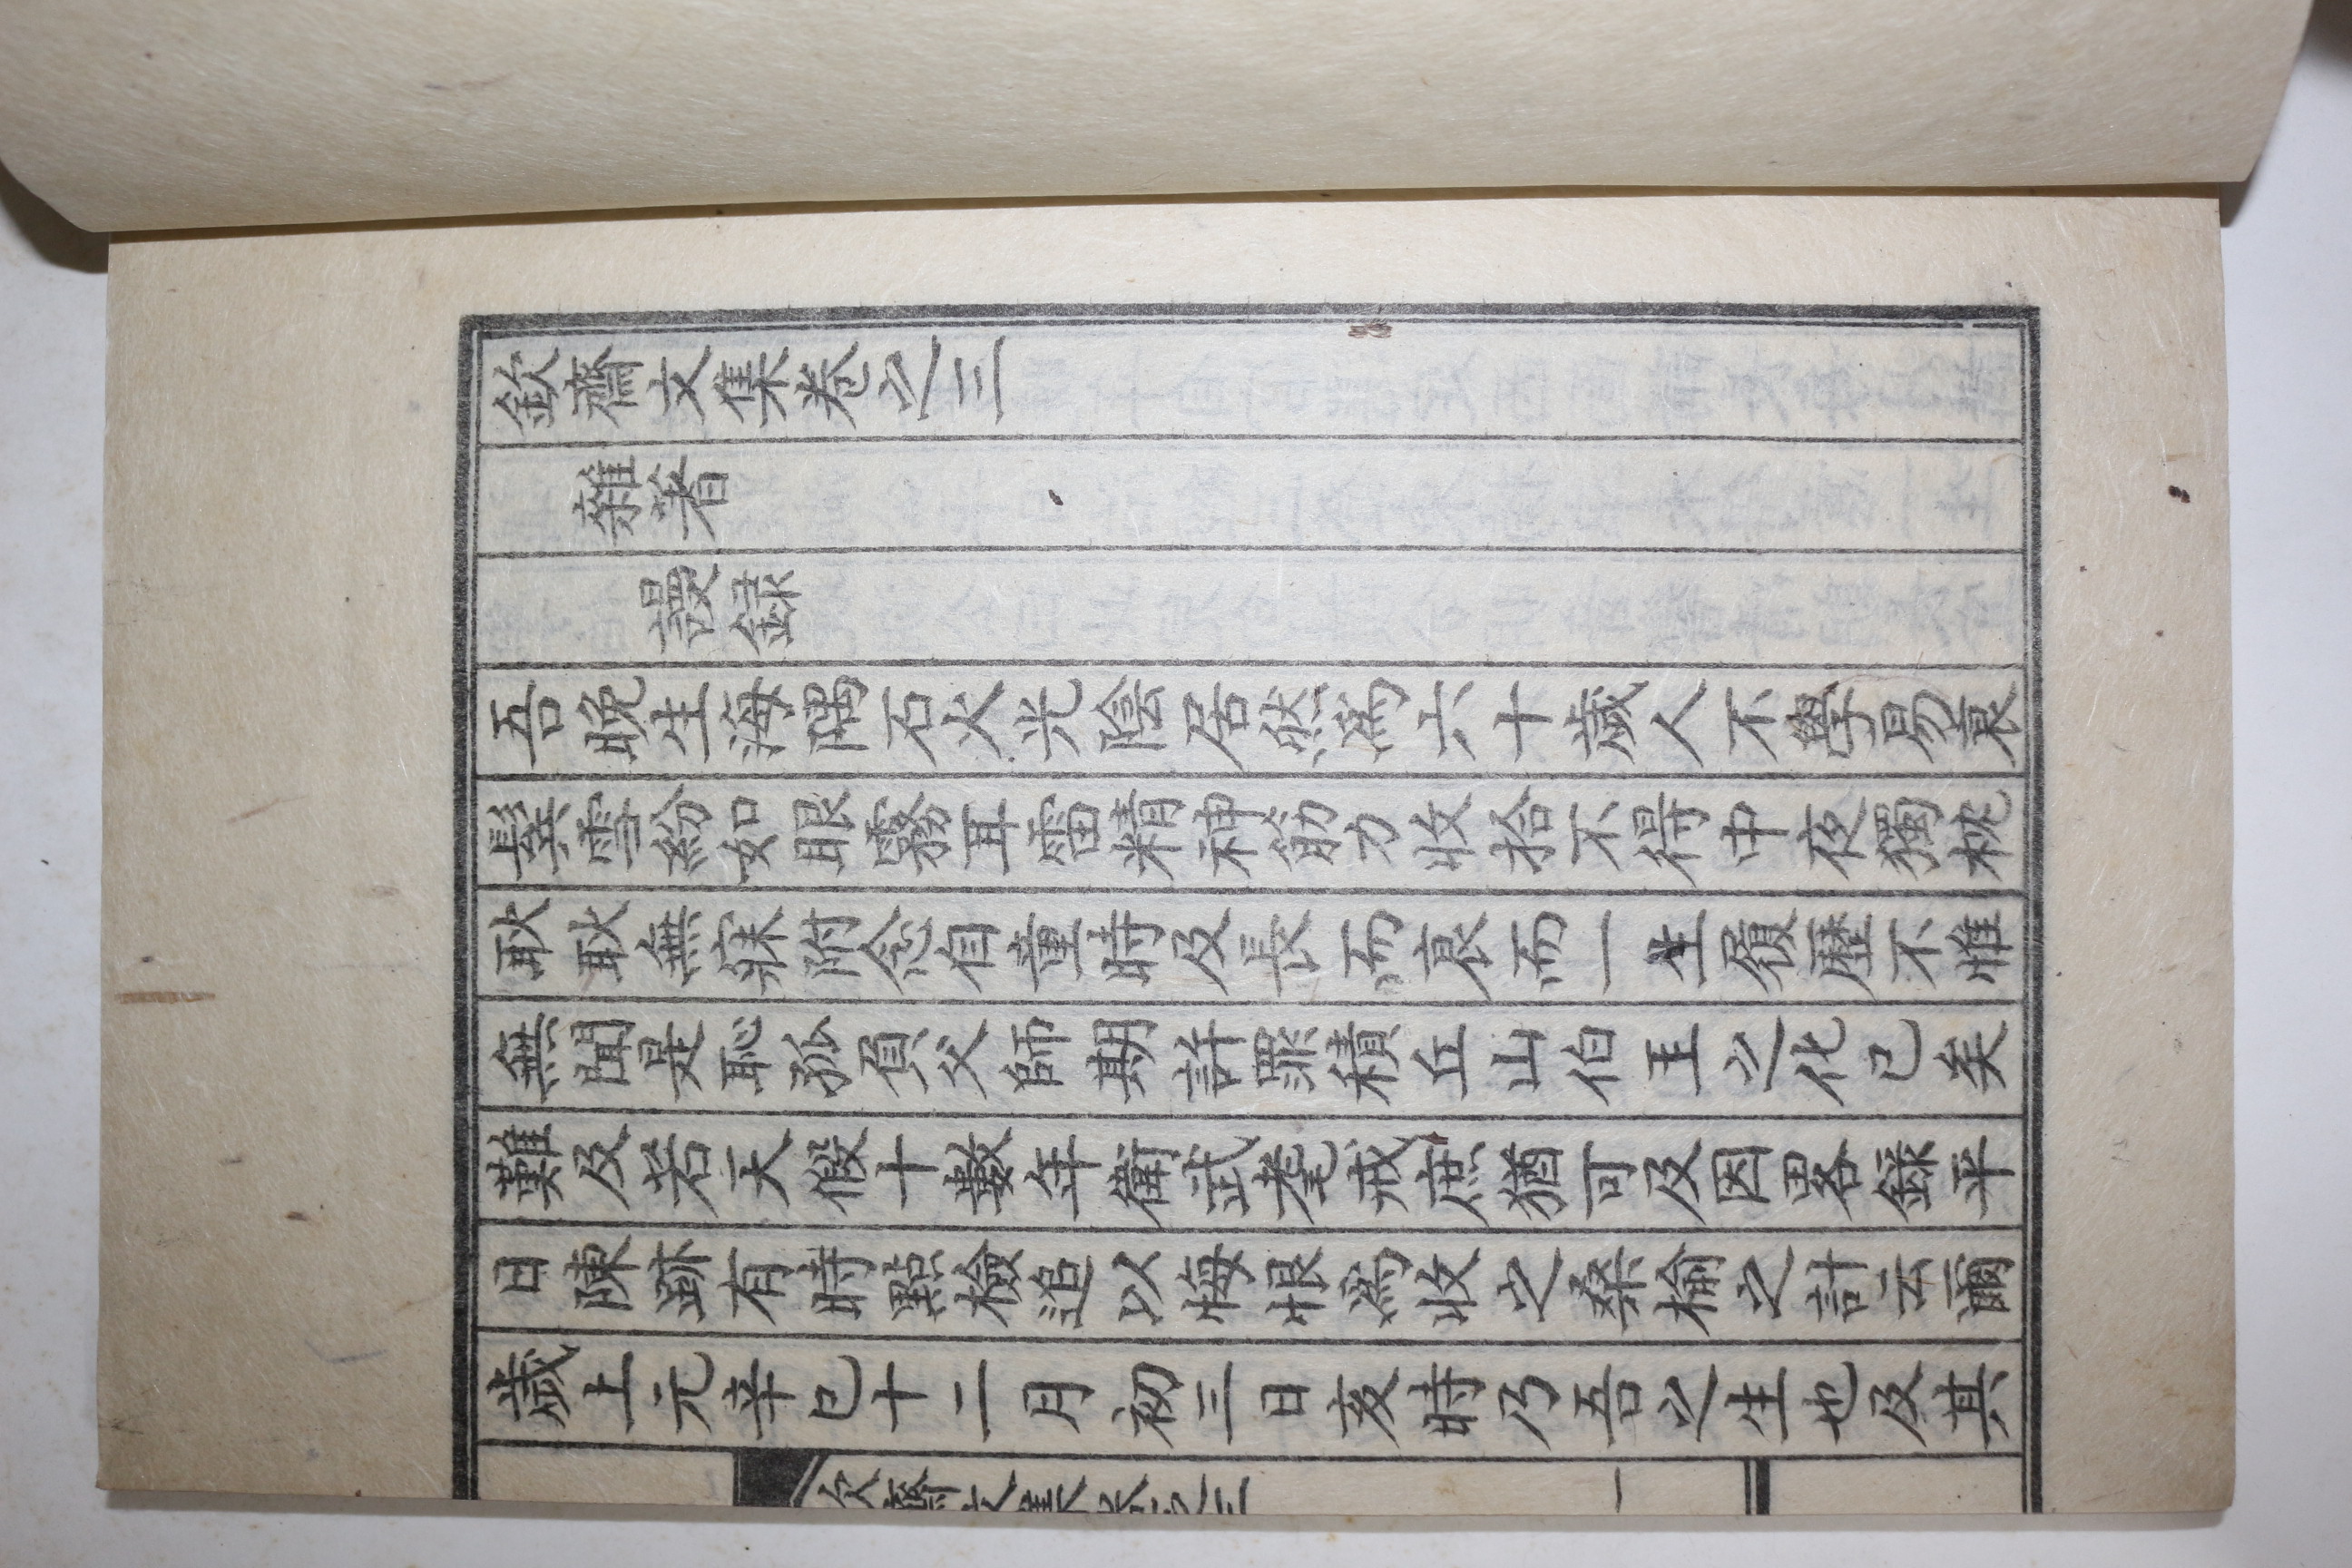 欽齋文集卷之三
雜著
謾録
吾晚生海隅石火光陰居然爲六十歲人不學易衰
鬂雪紛如眼霧耳雷精神筋力收拾不得中夜獨枕
耿耿無寐附念自童時及長而衰而一生履歷不惟
無聞是恥孤負父師期許罪積丘山伯玉之化已矣
難及若天假十數年衛武耄戒庶猶可及因畧錄平
日陳跡有時點檢追以悔恨爲收之桑榆之計云爾
歲上元辛巳十二月初三日亥時乃吾之生也及其
欽齋文集卷之三 一